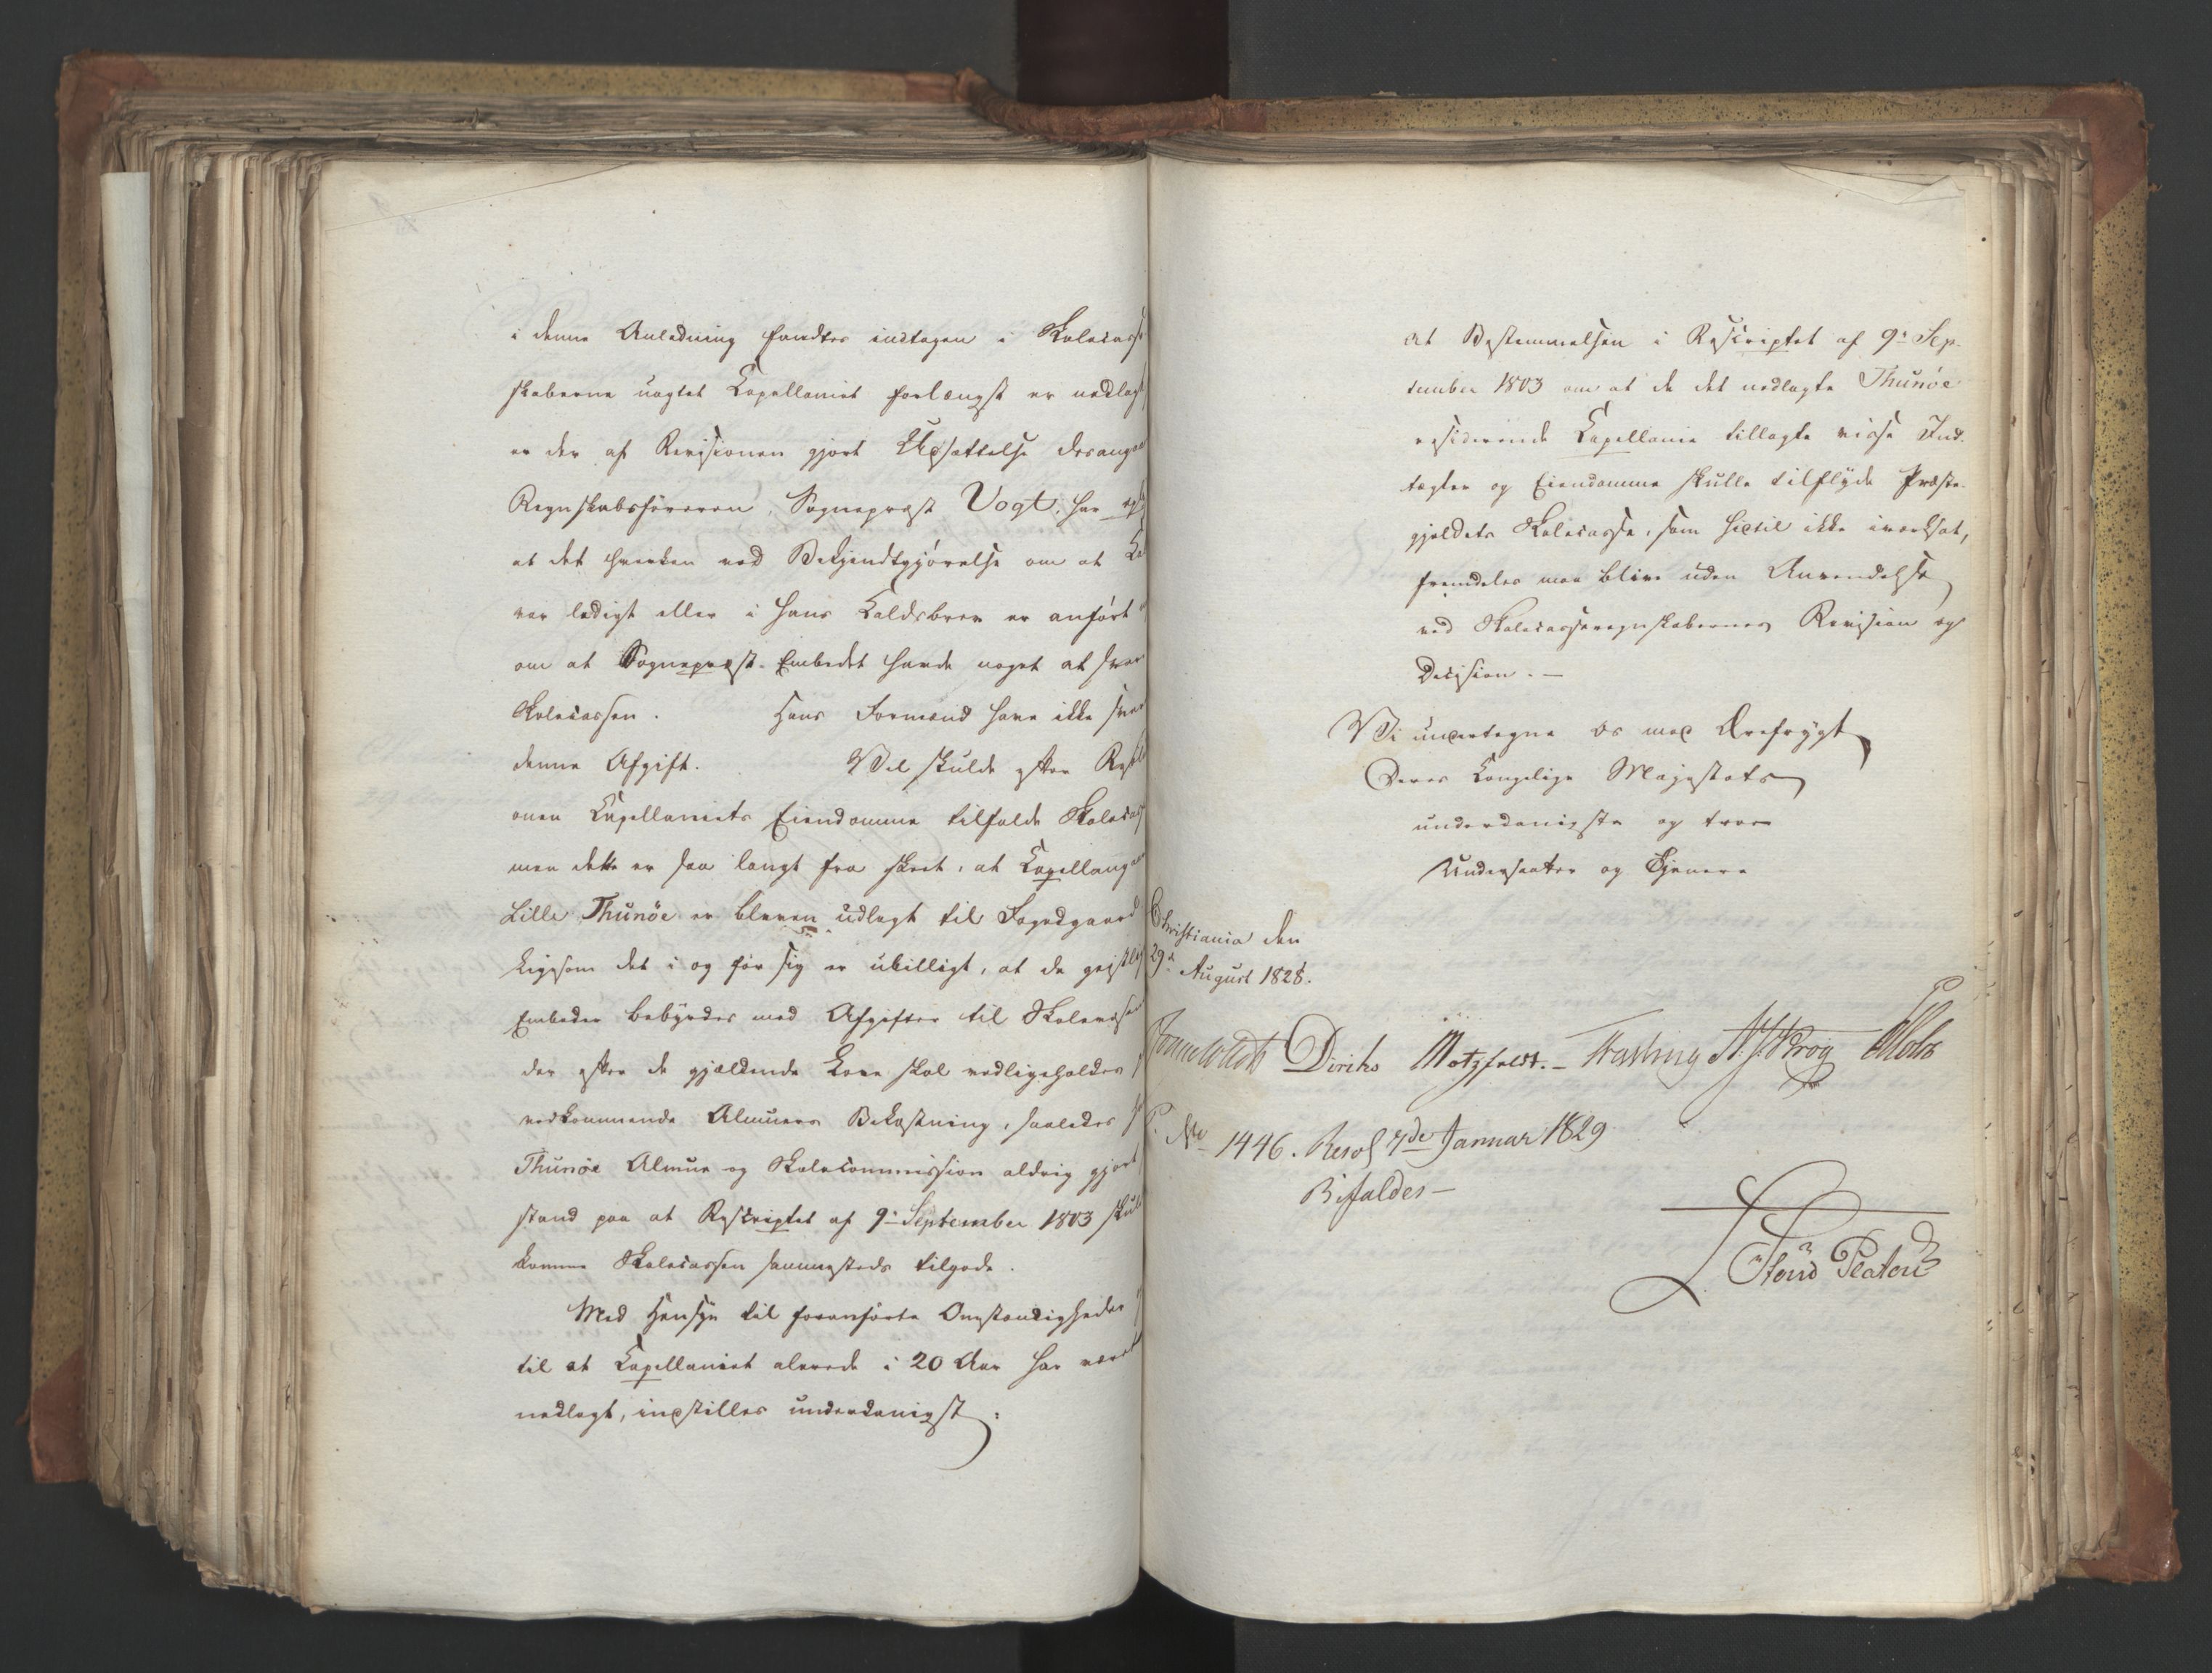 i denne Anledning fandtes indtagen i Skolecasse
skaberne uagtet Capellaniet forlængst er nedlagt
er der af Revisionen gjort Udsættelse desangaa
Regnskabsføreren, Sogneprest Vogt, har
at det hverken ved Bekjendtgjørelse om at
var ledigt eller i hans Kaldsbrev er anført
om at Sogneprest-Embedet havde noget at svar
Skolecassen. Hans Formænd have ikke svar
denne Afgift. Vel skulde efter
onen Capellaniets Eiendomme tilfalde Skolecas
men dette er saa langt fra skeet, at Capellangaar
Lille Thunöe er bleven udlagt til Fogedgaard
Ligesom det i og for sig er ubilligt, at de geistlig
Embeder bebyrdes med Afgifter til Skolevæsen
der efter de gjældende Love skal vedligeholdes
vedkommende Almues Bekostning, saaledes
Thunöe Almue og Skolecommission aldrig gjort
stand paa at Rescriptet af 9de September 1803 skul
komme Skolecassen sammesteds tilgode.
Med Hensyn til foranførte Omstændigheder
til at Capellaniet alerede i 20 Aar har været
nedlagt, indstilles underdanigst:
At Bestemmelsen i Rescriptet af 9de Sep-
tember 1803 om at de det nedlagte Thunöe
residerende Capellanie tillagte visse Ind-
tægter og Eiendomme skulle tilflyde Præste-
gjeldets Skolecasse, som hidtil ikke iværksat,
fremdeles maa blive uden Anvendelse
ved Skolecasseregnskabernes Revision og
Decision. —
Vi undertegne os med Ærefrygt
Deres Kongelige Majestæts
underdanigste og troe
Undersaatter og Tjenere
Christiania den
29de August 1828.
Sommerhielm Diriks Motzfeldt. – Fasting A. J. Krog P. Holst
P. No 1446. Resol 7de Januar 1829
Bifaldes —
Tönd Platen